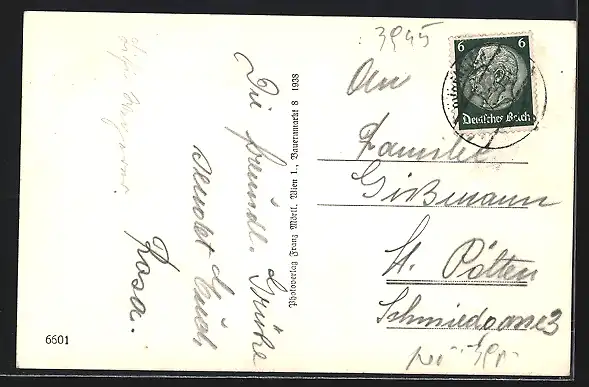 3945
6
6
Deutsches Reich
An
Familie
Gißmann
St. Pölten
Schmiedgasse 3
Die freundl. Grüße
sendet Euch
Rosa.
Photoverlag Franz Mörtl, Wien 1., Bauernmarkt 8 1938
6601